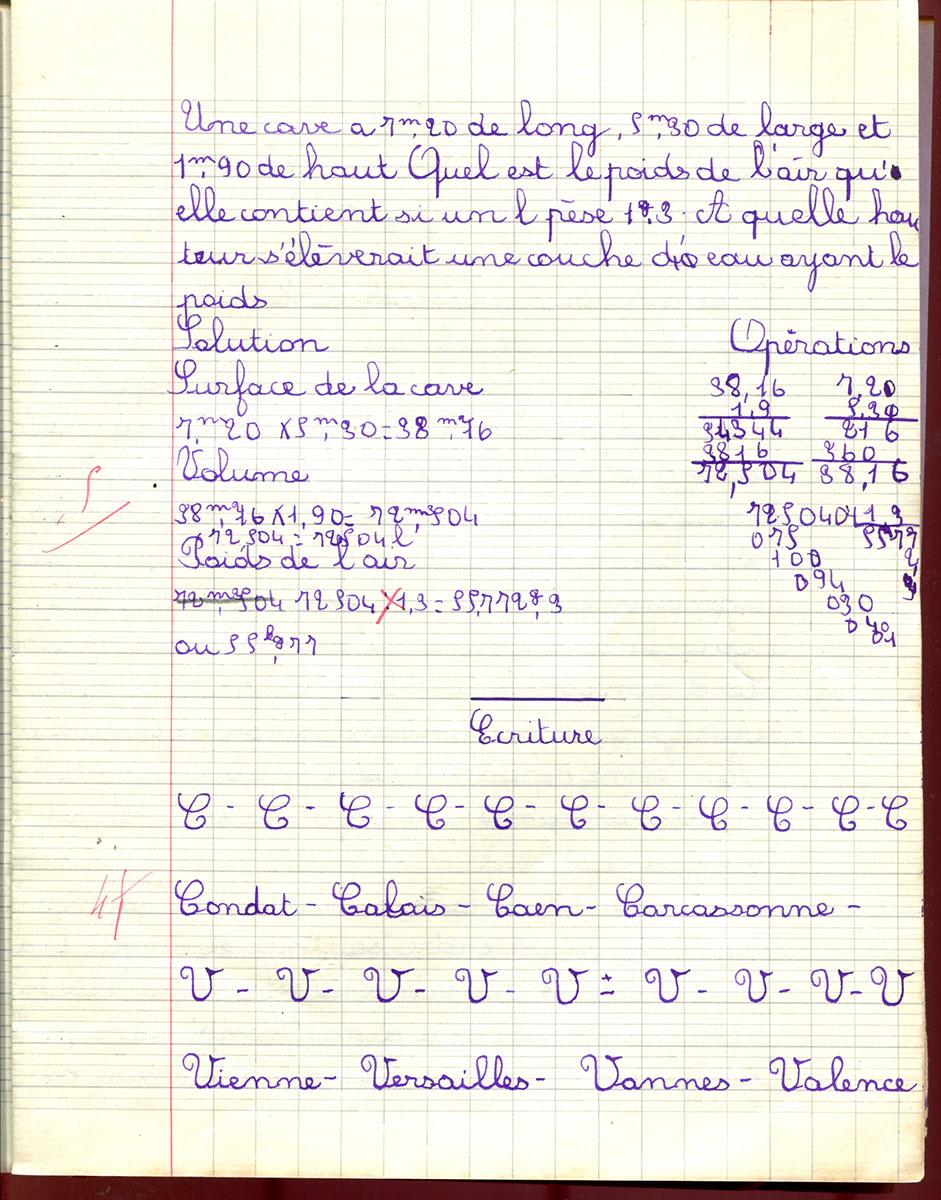 Une cave a 7m,20 de long, 5m,30 de large et
1m,90 de haut Quel est le poids de l'air qu'
elle contient si un l pèse 1g,3. A quelle hau
teur s'élèverait une couche d'eau ayant le
poids
Solution
Opérations
Surface de la cave
38,16 7,20
1,9 5,30
7,m20 X 5m,30 = 38m,76
34344 216
3816 360
Volume
72,504 38,16
5
38m,76 X 1,90 = 72m3504
72504 = 72504 l
725040 1,3
075 5577
Poids de l'air
100
094
72m3504 72504 X 1,3 = 55,772g,3
030
040
01
ou 55kg,77
Ecriture
C - C - C - C - C - C - C - C - C - C - C
Condat - Calais - Caen - Carcassonne -
V - V - V - V - V = V - V - V - V
Vienne - Versailles - Vannes - Valence